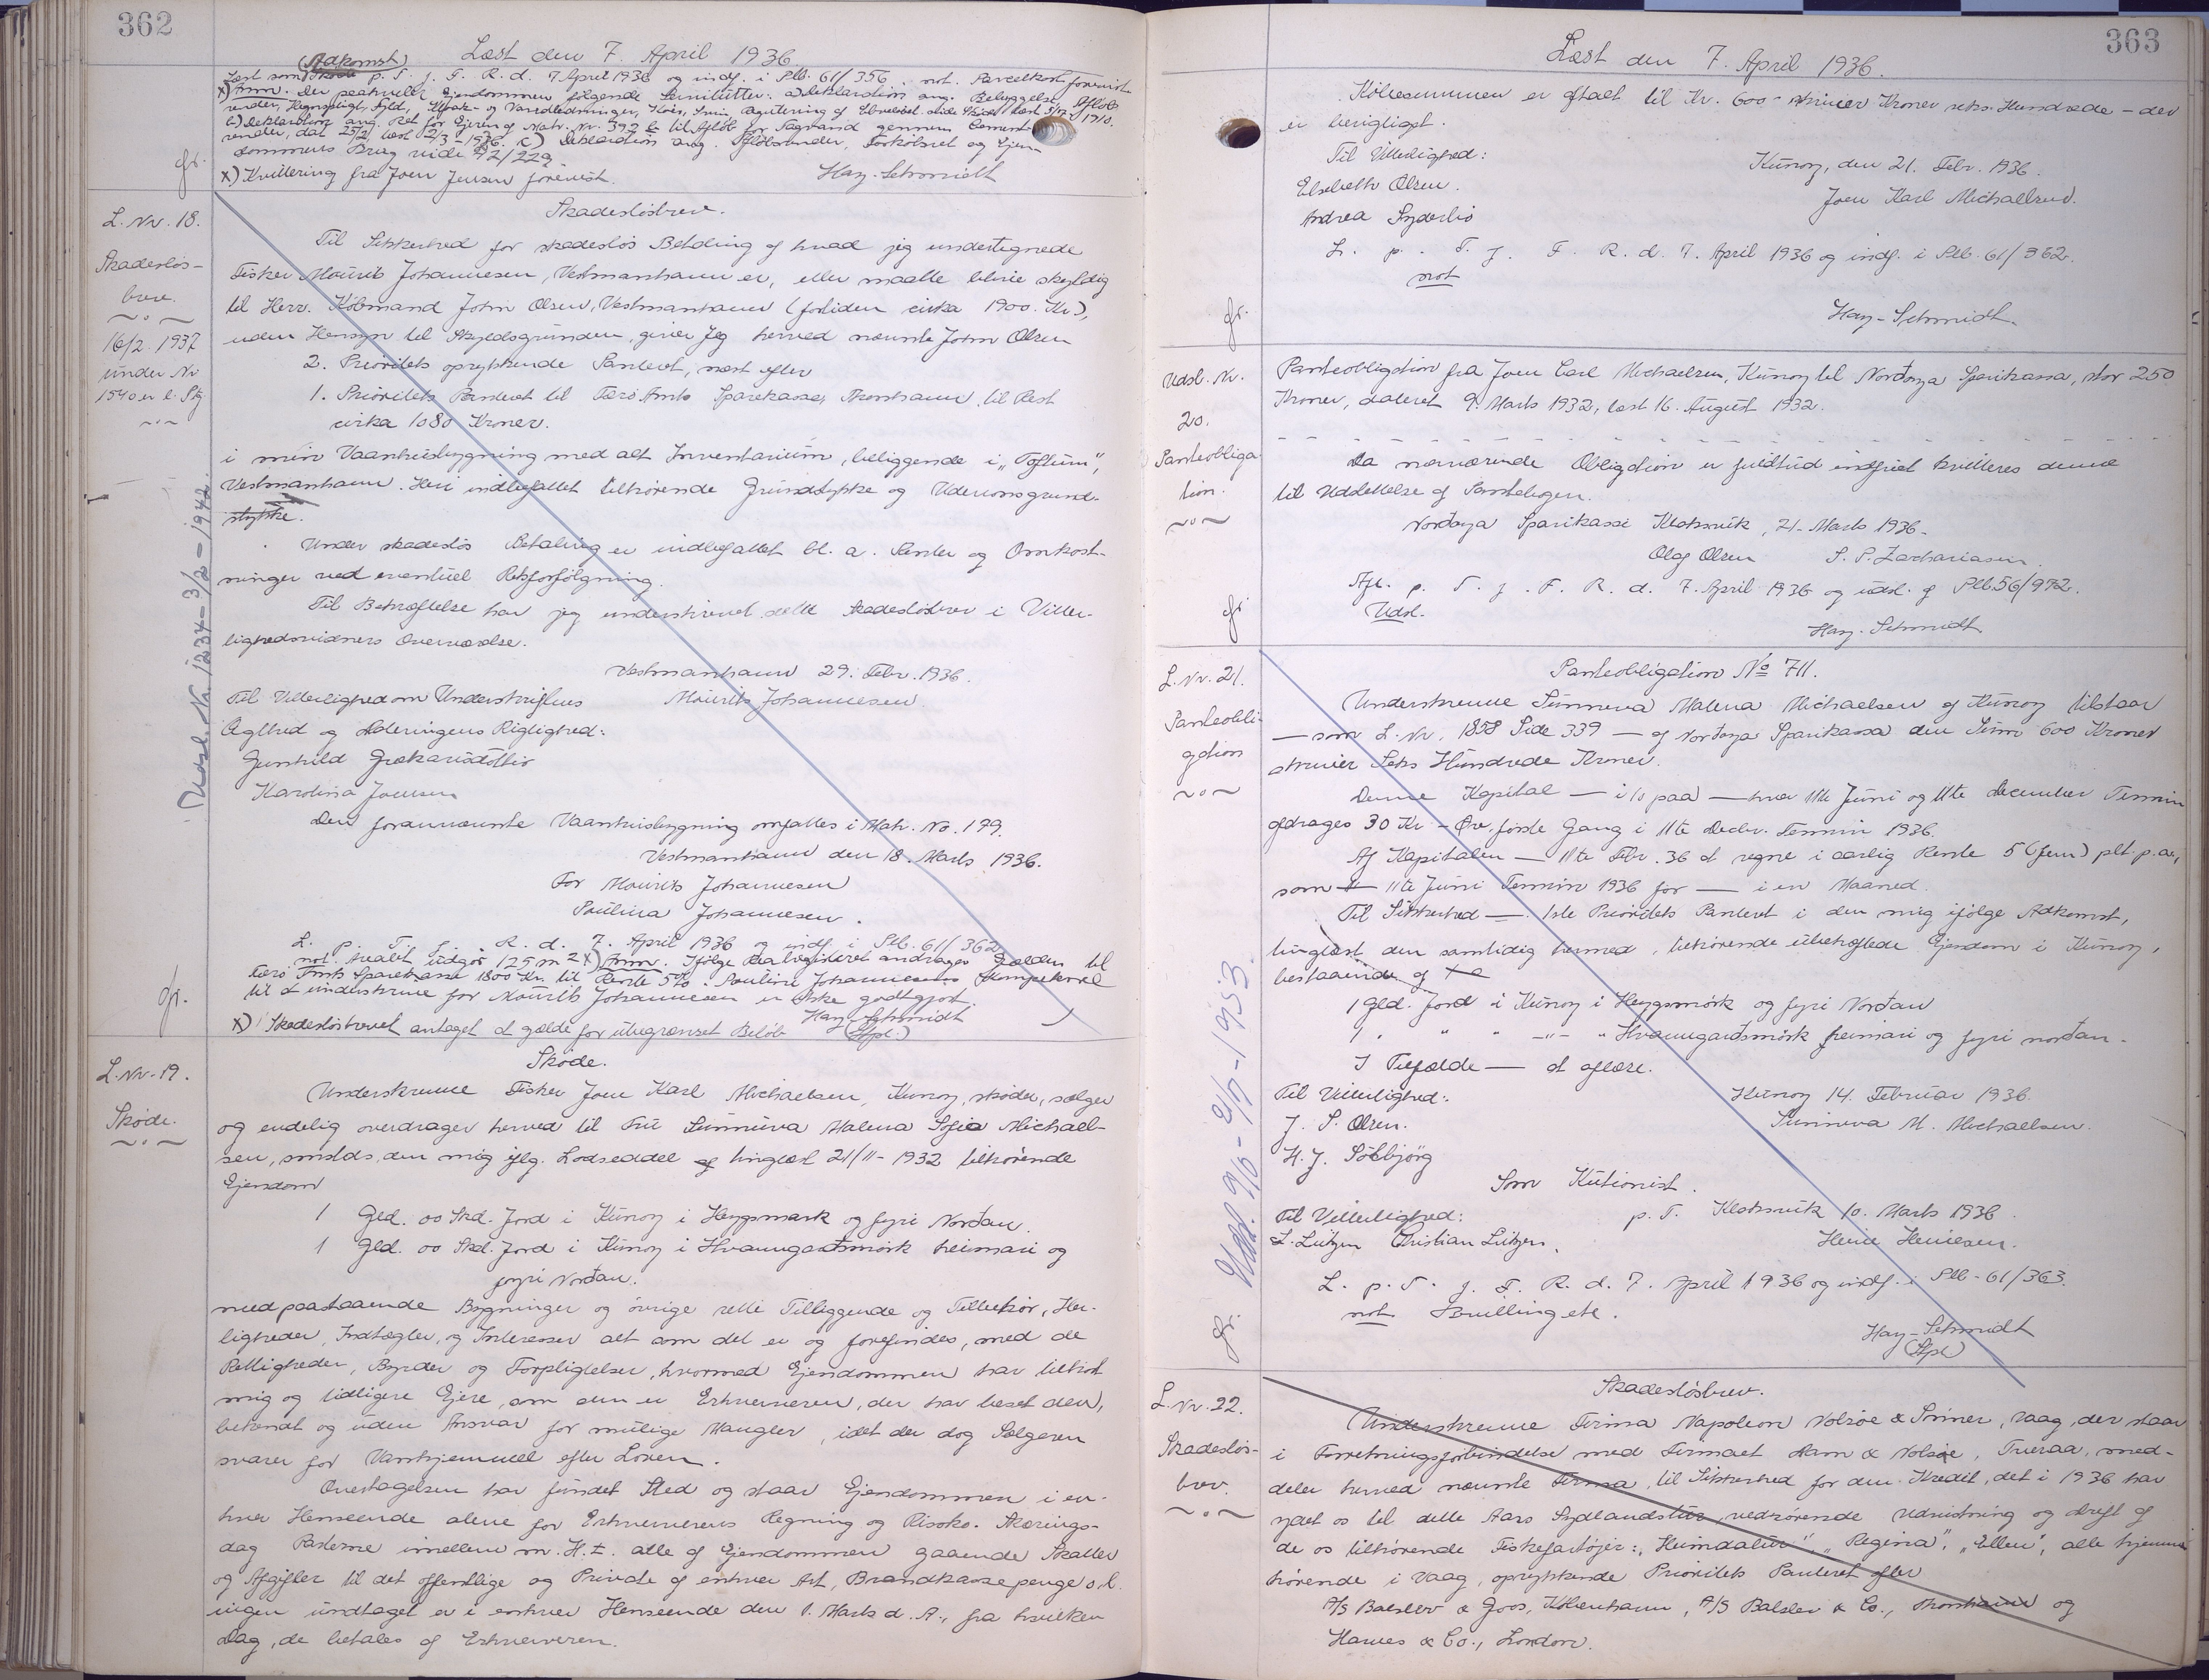 362
Læst den 7. April 1936
(Adkomst)
Læst som p. T. f. F. R. d. 7 April 1936 og indf. i Ptb. 61/356. not. Parcelkort forevist
x) Anm. Der paahviler Ejendommen følgende Servitutter: a) Deklaration ang. Bebyggelse, Afløb
render, Hegnspligt, Fyld, Kloak- og Vandledninger,
b) Deklaration ang. Ret for Ejeren af Matr. Nr. 392 til Afløb for Tagvand gennem Cement
render, dat 25/2 læst 12/3-1936. c) Deklaration ang. Afløbsrender, Forkøbsret og Ejen-
dommens Brug vide 42/229.
x) Kvittering fra Joen Jensen forevist.
Hay-Schmidt
gr.
L. Nr. 18.
Skadesløs-
brev.
16/2 1937
under Nr
1540 er l. Skj
Udsl. Nr. 1234 - 3/2 - 1942.
Skadesløsbrev.
Til Sikkerhed for skadesløs Betaling af hvad jeg undertegnede
Fisker Mourits Johannesen, Vestmanhavn er, eller maatte blive skyldig
til Herr. Købmand John Olsen, Vestmanhavn (fortiden cirka 1900. Kr.),
uden Hensyn til Skyldsgrunden, giver Jeg herved nævnte John Olsen
2. Prioritets oprykkende Panteret, næst efter
1. Prioritets Panteret til Færø Amts Sparekasse, Thorshavn til Rest
cirka 1080 Kroner.
i min Vaaningsbygning med alt Inventarium, beliggende i "Toftum",
Vestmanhavn. Heri indbefattet tilhørende Grundstykke og Udenomsgrund-
stykke.
Under skadesløs Betaling er indbefattet bl. a. Renter og Omkost-
ninger ved eventuel Retsforfølgning.
Til Bekræftelse har jeg underskrevet dette Skadesløsbrev i Vitter-
lighedsvidners Overværelse.
Vestmanhavn 29. Febr. 1936.
Til Vitterlighed om Underskriftens
Mourits Johannesen
Ægthed og Dateringens Rigtighed:
Gunhild
Karolina Joensen
Den forannævnte Vaaningsbygning omfattes i Matr. No. 199.
Vestmanhavn den 18. Marts 1936.
For Mourits Johannesen
Paulina Johannesen.
L. p. T. f. R. d. 7. April 1936 og indf. i Ptb. 61/362
not. Arealet udgør 125 m2 x) Anm. Ifølge Realregistret andrager Gælden til
Færø Amts Sparekasse 1800 Kr. til Rente 5%. Pauline Johannesens Kompetence
til at underskrive for Mourits Johannesen er ikke godtgjort.
x) Skadesløsbrevet antaget at gælde for ubegrænset Beløb
Hay-Schmidt
(Stpl.)
gr.
L. Nr. 19.
Skøde.
Skøde.
Underskrevne Fisker Joen Karl Michaelsen, Kunoy, skøder, sælger
og endelig overdrager herved til Fru Sunnuva Malena Sofia Michael-
sen, smstds, den mig iflg. Lodseddel af tinglæst 21/11-1932 tilhørende
Ejendom
1 Gld. oo Skd. Jord i Kunoy i Heygsmørk og fyri Norðan.
1 Gld. oo Skd. Jord i Kunoy i Hvanngarðsmørk heimari og
fyri Norðan.
med paastaaende Bygninger og øvrige rette Tilliggende og Tilbehør, Her-
ligheder, Indtægter, og Interesser alt som det er og forefindes, med de
Rettigheder, Byrder og Forpligtelser, hvormed Ejendommen har tilhørt
mig og tidligere Ejere, som den er Erhververen, der har beset den,
bekendt og uden Ansvar for mulige Mangler, idet der dog Sælgeren
svarer for Vanhjemmel efter Loven.
Overtagelsen har fundet Sted og staar Ejendommen i en-
hver Henseende alene for Erhververens Regning og Risiko. Skærings-
dag Parterne imellem m. H. t. alle af Ejendommen gaaende Skatter
og Afgifter til det offentlige og Private af enhver Art, Brandkassepenge o. l.
ingen undtaget er i enhver Henseende den 1. Marts d. A., fra hvilken
Dag, de betales af Erhververen.
363
Læst den 7. April 1936.
Købesummen er aftalt til Kr. 600 - skriver Kroner seks Hundrede - der
er berigtiget.
Til Vitterlighed:
Kunoy, den 21. Febr. 1936.
Elsebeth Olsen.
Joen Karl Michaelsen.
Andrea Syderbø
L. p. T. f. F. R. d. 7. April 1936 og indf. i Ptb. 61/362.
not
Hay-Schmidt.
gr.
Udsl. Nr.
20.
Panteobliga
tion.
Panteobligation fra Joen Carl Michaelsen, Kunoy til Norðoya Sparikassa, stor 250
Kroner, dateret 9. Marts 1932, læst 16. August 1932.
Da nærværende Obligation er fuldtud indfriet kvitteres denne
til Udslettelse af Pantebogen.
Norðoya Sparikassi Klaksvik, 21. Marts 1936.
Olaf Olsen S. P. Zachariasen
Afl. p. T. f. F. R. d. 7. April 1936 og udsl. af Ptb. 56/972.
Udsl.
Hay-Schmidt.
gr
L. Nr. 21.
Panteobli-
gation
Udsl. 9/6 - 2/7 - 1953.
Panteobligation No 711.
Underskrevne Sunneva Malena Michaelsen af Kunoy tilstaar
— som L. Nr. 1858 Side 339 — af Norðoya Sparikassa den Sum 600 Kroner
skriver Seks Hundrede Kroner.
Denne Kapital — i/o paa — hver 11te Juni og 11te December Termin
afdrages 30 Kr - Øre, første Gang i 11te Decbr. Termin 1936.
Af Kapitalen — 11te Febr. 36 at regne i aarlig Rente 5 (fem) pCt. p. a.,
som — 11te Juni Termin 1936 for — i en Maaned.
Til Sikkerhed — 1ste Prioritets Panteret i den mig ifølge Adkomst,
tinglæst den samtidig hermed, tilhørende ubehæftede Ejendom i Kunoy,
bestaaende af
1 Gld. Jord i Kunoy i Heygsmørk og fyri Norðan
1 " " " —"— " Hvanngarðsmørk heimari og fyri norðan.
I Tilfælde — at aflæse.
Til Vitterlighed:
Kunoy 14. Februar 1936.
J. P. Olsen.
Sunneva M. Michaelsen.
H. J. Sólbjörg
Som Kutionist.
Til Vitterlighed:
p. T. Klaksvik 10. Marts 1936.
L. Lützen Christian Lützen.
Heine Heinesen.
L. p. T. f. F. R. d. 7. April 1936 og indf. i Ptb - 61/363.
not
Hay-Schmidt
(Stpl)
gr.
L. Nr. 22.
Skadesløs-
brev.
Skadesløsbrev.
Underskrevne Firma Napoleon Nolsøe & Sønner, Vaag, der staar
i Forretningsforbindelse med Firmaet & Nolsøe, Tveraa, med-
deler herved nævnte Firma, til Sikkerhed for den Kredit, det i 1936 har
ydet os til dette Aars Sydlandstur vedrørende Udrustning og Drift af
de os tilhørende Fiskefartøjer: "Heimdalur", "Regina", "Ellen", alle hjemme
hørende i Vaag, oprykkende Prioritets Panteret efter
A/S Balslev & Goos, København, A/S Balslev & Co., Thorshavn og
Hawes & Co., London.